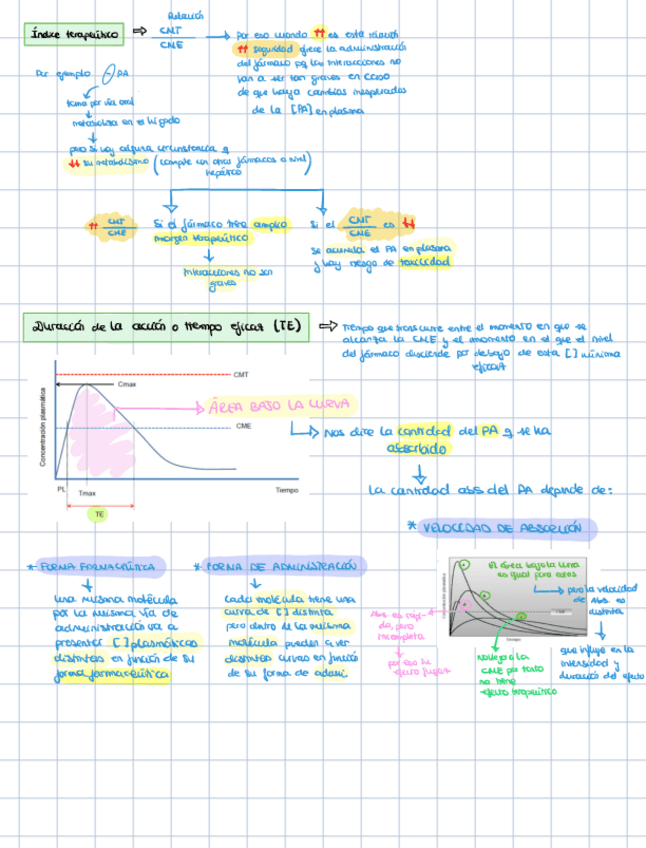 Índice terapéutico
Relación
CMT
CME
por eso cuando ↑↑ es esta relación
↑↑ seguridad ofrece la administración
del fármaco pq las interacciones no
van a ser tan graves en caso
de que haya cambios inesperados
de la [PA] en plasma
Por ejemplo PA
toma por vía oral
metaboliza en el hígado
pero si hay alguna circunstancia q
↓↓ su metabolismo (compite con otros fármacos a nivel
hepático)
↑↑ CMT
CME
Si el fármaco tiene amplio
margen terapéutico
interacciones no son
graves
Si el CMT es ↓↓
CME
se acumula el PA en plasma
y hay riesgo de toxicidad
Duración de la acción o tiempo eficaz (TE)
Tiempo que transcurre entre el momento en que se
alcanza la CME y el momento en el que el nivel
del fármaco disciende por debajo de esta [] mínima
eficaz
Concentración plasmática
CMT
Cmax
CME
PL
Tmax
Tiempo
TE
ÁREA BAJO LA CURVA
Nos dice la cantidad del PA q se ha
absorbido
la cantidad abs del PA depende de:
* VELOCIDAD DE ABSORCIÓN
* FORMA FARMACÉUTICA
una misma molécula
por la misma vía de
administración va a
presentar [] plasmáticas
distintas en función de su
forma farmacéutica
* FORMA DE ADMINISTRACIÓN
cada molécula tiene una
curva de [] distinta
pero dentro de la misma
molécula pueden haber
distintas curvas en función
de su forma de admin.
El área bajo la curva
es igual para estos
pero la velocidad
de abs. es
distinta
que influye en la
intensidad y
duración del efecto
Abs. es rápi-
da, pero
incompleta
por eso su
efecto fugaz
no llega a la
CME por tanto
no tiene
efecto terapéutico